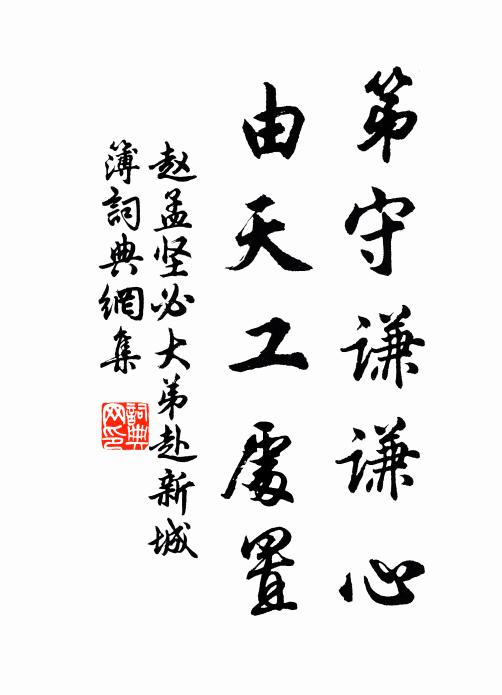 第守谦谦心
由天工處置
赵孟坚必大弟赴新城
簿詞典網集
詞典
网印